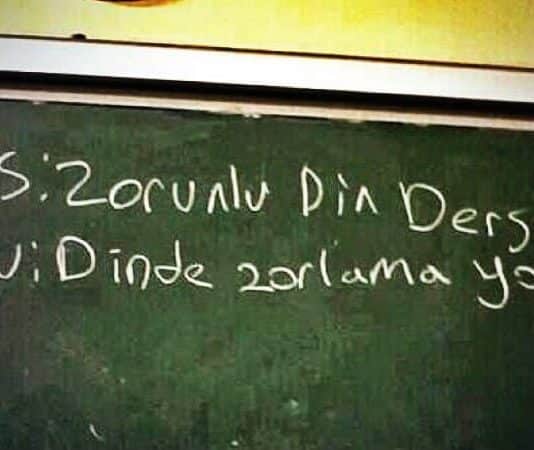 S: Zorunlu Din Ders
U: Dinde zorlama yo